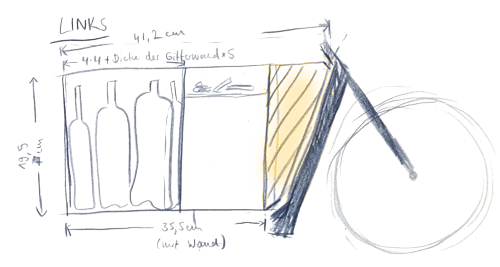 LINKS
41,2 cm
4·4 + Dicke der Gitterwand × 5
19,5 cm
35,5 cm
(mit Wand)